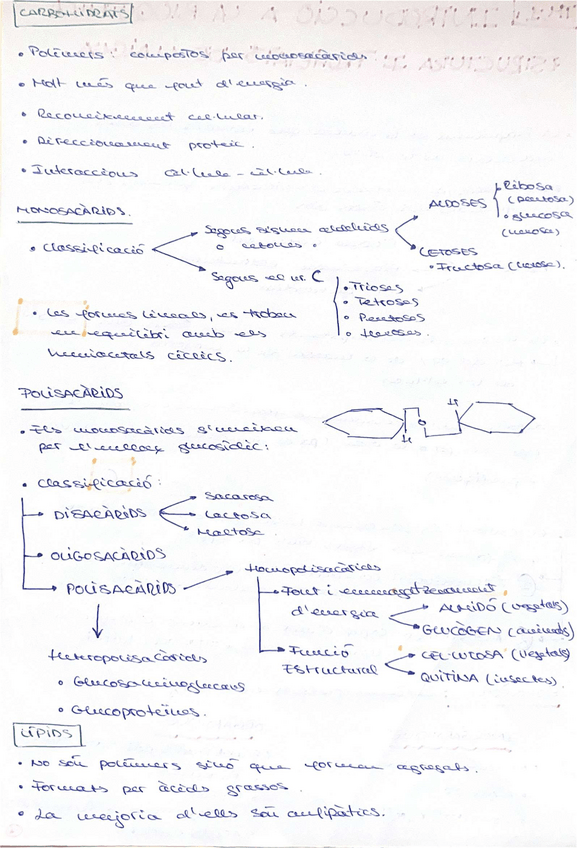 CARBOHIDRATS
• Polímers: compostos per monosacàrids.
• Molt més que font d'energia.
• Reconeixement cel·lular.
• Direccionament proteic.
• Interaccions cèl·lula - cèl·lula.
MONOSACÀRIDS.
• Classificació
Segons siguin aldehids
o cetones.
ALDOSES
• Ribosa
(pentosa)
• glucosa
(hexosa)
CETOSES
• Fructosa (hexosa).
Segons el nr. C
• Trioses
• Tetroses
• Pentoses
• Hexoses.
• Les formes lineals, es troben
en equilibri amb els
hemiacetals cíclics.
POLISACÀRIDS
• Els monosacàrids s'uneixen
per l'enllaç glucosídic:
H
O
H
• Classificació:
DISACÀRIDS
Sacarosa
Lactosa
Maltosa
OLIGOSACÀRIDS
POLISACÀRIDS
Homopolisacàrids
Font i emmagatzemament
d'energia
ALMIDÓ (vegetals)
GLUCÒGEN (animals)
Funció
Estructural
CEL·LULOSA (vegetals)
QUITINA (insectes).
Heteropolisacàrids
• Glucosaminoglucans
• Glucoproteïnes.
LÍPIDS
• No són polímers sinó que formen agregats.
• Formats per àcids grassos.
• La majoria d'ells són amfipàtics.